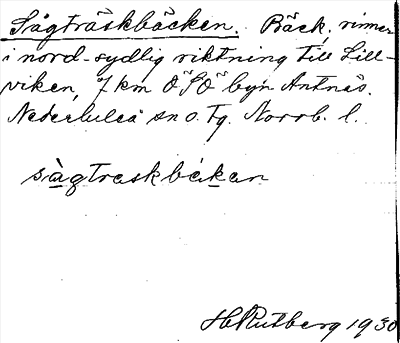 Sågträskbäcken. Bäck, rinner
i nord-sydlig riktning till Lill-
viken, 7 km ÖSÖ byn Antnäs.
Nederluleå sn o. Tg. Norrb. l.
sågtraskbäkan
H Rutberg 1930